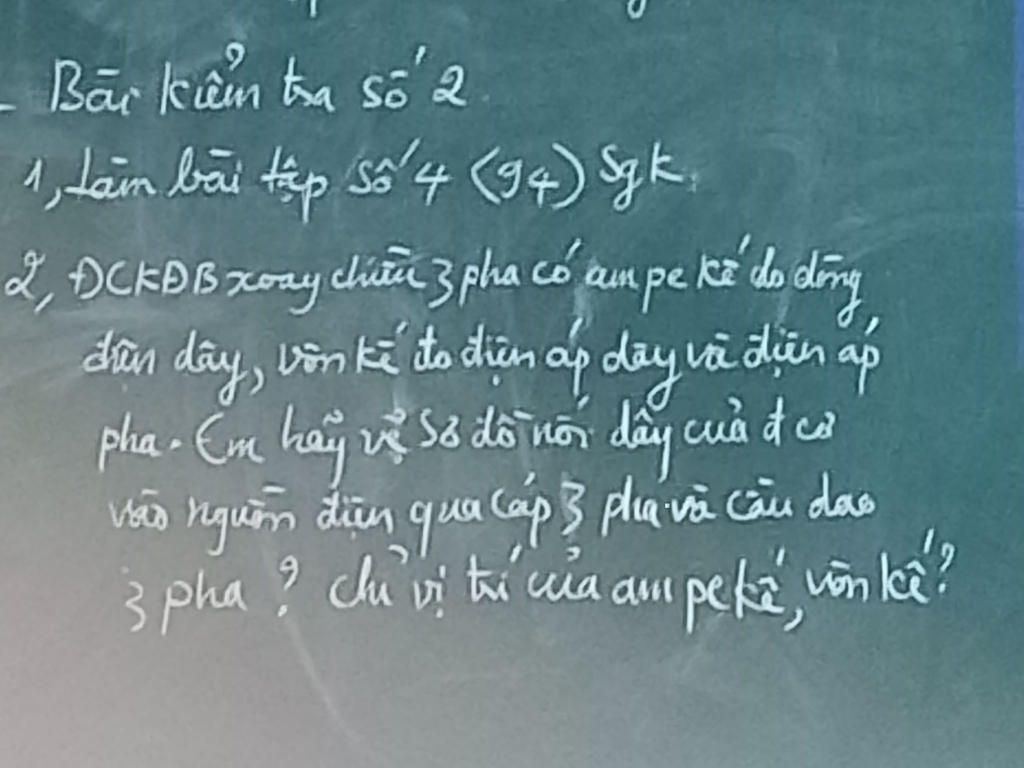 - Bài kiểm tra số 2
1, Làm bài tập số 4 (94) Sgk.
2, ĐCKĐB xoay chiều 3 pha có ampe kế đo dòng
điện dây, vôn kế đo điện áp dây và điện áp
pha. Em hãy vẽ sơ đồ nối dây của đ cơ
vào nguồn điện qua cáp 3 pha và cầu dao
3 pha ? chỉ vị trí của ampe kế, vôn kế?